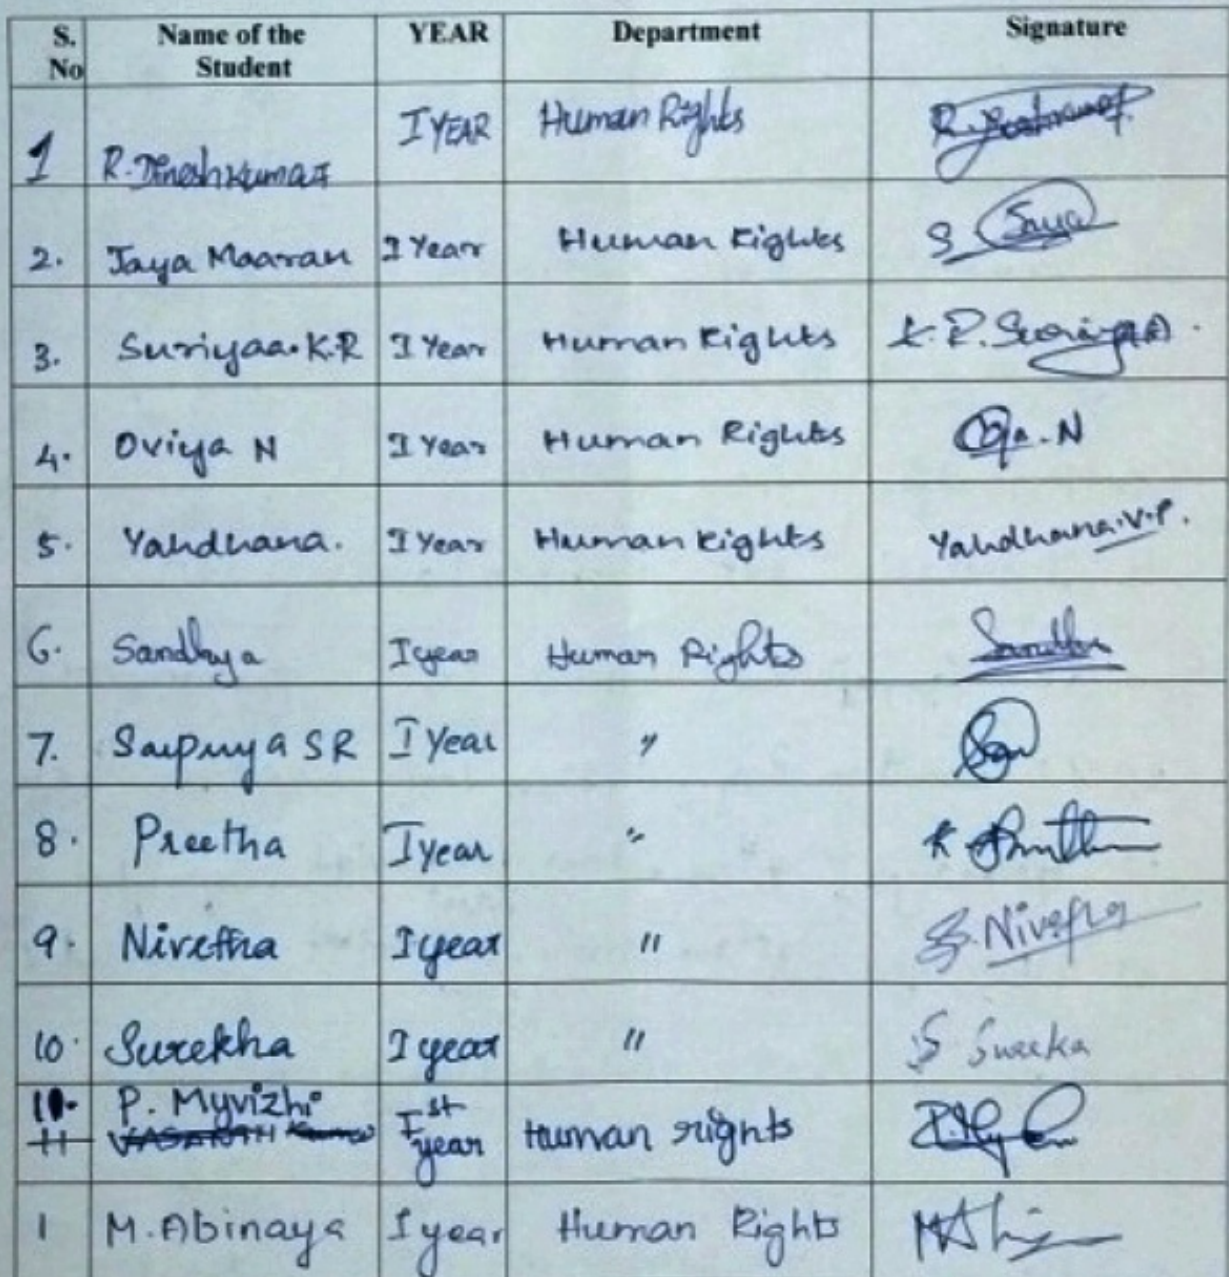 S. No Name of the Student YEAR Department Signature
1 R. Dineshkumar I YEAR Human Rights
2. Jaya Maaran I Year Human Rights S Jaya
3. Suriyaa. K.R I Year Human Rights K.R. Suriyaa
4. Oviya N I Year Human Rights N
5. Yahdhana. I Year Human Rights Yahdhana.V.P.
6. Sandhya I year Human Rights Sandhya
7. Saipriya SR I Year " 
8. Preetha I year " K
9. Nivetha I year " S. Nivetha
10. Surekha I year " S Sureka
11. P. Myvizhi Ist year Human rights
11
1 M. Abinaya I year Human Rights